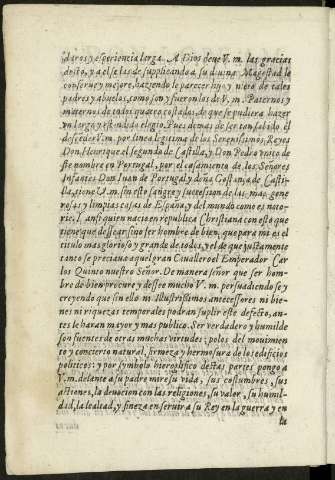 daros y esperiencia larga. A Dios deue V. m. las gracias
desto, y a el se las de supplicando a su diuina Magestad le
conserue y mejore, haziendole parecer hijo y nieto de tales
padres y abuelos, como son y fueron los de V. m. Paternos y
maternos de todos quatro costados, de que se pudiera hazer
vn largo y estendido elogio. Pues demas de ser tan sabido el
descēder V. m. por linea legitima de los Serenissimos, Reyes
Don Henrique el segundo de Castilla, y Don Pedro vnico de
este nombre en Portugal, por el casamiento de los Señores
Infantes Don Iuan de Portugal y doña Costança de Casti-
lla, tiene V. m. sin esto sangre y sucession de las mas gene-
rosas y limpias casas de España, y del mundo como es noto-
rio. Y ansi quien nacio en republica Christiana con esto que
tiene que dessear sino ser hombre de bien, que para mi es el
titulo mas glorioso y grande de todos, y el de que justamente
tanto se preciaua aquel gran Cauallero el Emperador Car
los Quinto nuestro Señor. De manera señor que ser hom-
bre de bien procure y dessee mucho V. m. persuadiendose y
creyendo que sin ello ni Illustrissimos antecessores ni bie-
nes ni riquezas temporales podran suplir este defecto, an-
tes le haran mayor y mas publico. Ser verdadero y humilde
son fuentes de otras muchas virtudes; polos del mouimien
to y concierto natural, firmeza y hermosura de los edificios
politicos: y por symbolo hieroglifico destas partes pongo a
V. m. delante a su padre mire su vida, sus costumbres, sus
actiones, la deuocion con las religiones, su valor, su humil-
dad, la lealtad, y fineza en seruir a su Rey en la guerra y en
la